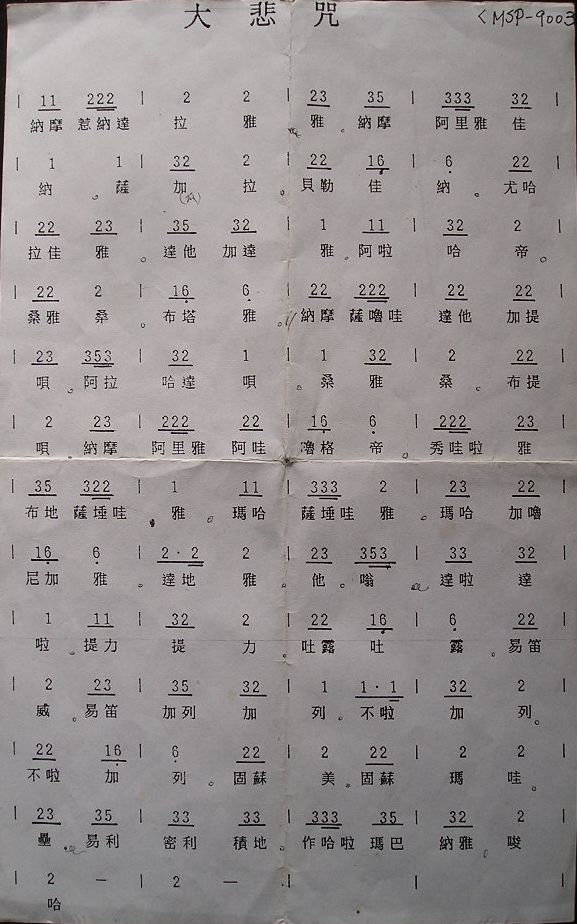 大悲咒 < MSP-9003
| 11 222 | 2 2 | 23 35 | 333 32 |
納摩 惹納達 拉 雅 雅。納摩 阿里雅 佳
| 1 1 | 32 2 | 22 16 | 6 22 |
納。薩 加 拉。貝勒 佳 納。尤哈
| 22 23 | 35 32 | 1 11 | 32 2 |
拉佳 雅。達他 加達 雅。阿啦 哈 帝。
| 22 2 | 16 6 | 22 222 | 22 22 |
桑雅 桑。布塔 雅。納摩 薩嚕哇 達他 加提
| 23 353 | 32 1 | 1 32 | 2 22 |
唄。阿拉 哈達 唄。桑 雅 桑。布提
| 2 23 | 222 22 | 16 6 | 222 23 |
唄。納摩 阿里雅 阿哇 嚕格 帝。秀哇啦 雅
| 35 322 | 1 11 | 333 2 | 23 22 |
布地 薩埵哇 雅。瑪哈 薩埵哇 雅。瑪哈 加嚕
| 16 6 | 2·2 2 | 23 353 | 33 32 |
尼加 雅。達地 雅。他。嗡 達啦 達
| 1 11 | 32 2 | 22 16 | 6 22 |
啦。提力 提 力。吐露 吐 露。易笛
| 2 23 | 35 32 | 1 1·1 | 32 2 |
威。易笛 加列 加 列。不啦 加 列。
| 22 16 | 6 22 | 2 22 | 2 2 |
不啦 加 列。固蘇 美。固蘇 瑪 哇。
| 23 35 | 33 33 | 333 35 | 32 2 |
壘。易利 密利 積地。作哈啦 瑪巴 納雅。唆
| 2 － | 2 － | | |
哈